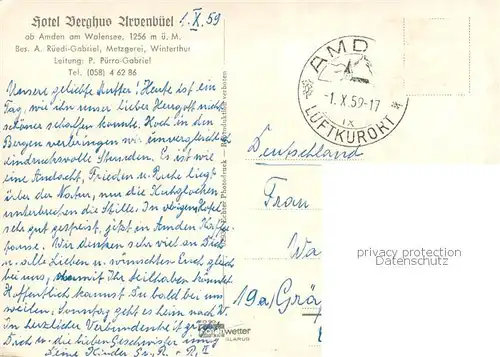 Hotel Berghus Arvenbüel
ob Amden am Walensee, 1256 m ü. M.
Bes. A. Rüedi-Gabriel, Metzgerei, Winterthur
Leitung: P. Pürro-Gabriel
Tel. (058) 4 62 86
1.X.59
Unsere geliebte Mutter! Heute ist ein
Tag, wie ihn unser lieber Herrgott nicht
schöner schaffen konnte. Hoch in den
Bergen verbringen wir unvergesslich
eindrucksvolle Stunden. Es ist wie
eine Andacht, Frieden u. Ruhe liegt
über der Natur, nur die Kuhglocken
unterbrechen die Stille. In obigem Hotel
sehr gut gespeist, jetzt in Amden Kaffee-
pause. Wir denken sehr viel an Dich
u. alle Lieben u. wünschten Euch gleich
bei uns, damit Ihr teilhaben könntet
Hoffentlich kannst Du bald bei uns
weilen. Sonntag geht es heim nach W.
In herzlicher Verbundenheit grüssen
Dich u. die lieben Geschwister innig
Deine Kinder
AMD
-1.X.59-17
IX
LUFTKURORT
Deutschland
Frau
Wa
19a/Grä
privacy protection
Datenschutz
wetter
GLARUS